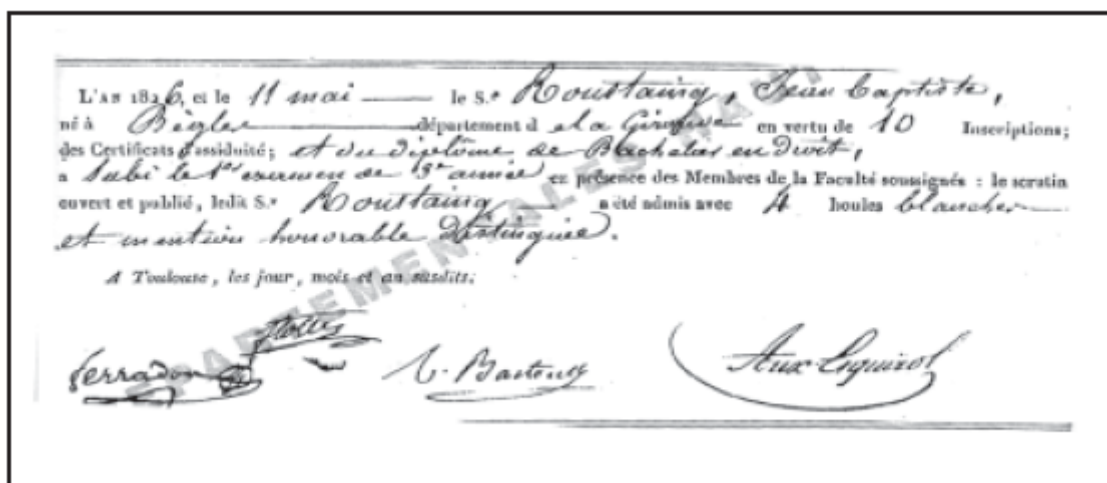 L'AN 1826, et le 11 mai le S.r Roustaing, Jean Baptiste,
né à Bègles département d e la Gironde en vertu de 10 Inscriptions;
des Certificats d'assiduité; et du diplôme de Bachelier en droit,
a subi le 1er examen de 3e année en présence des Membres de la Faculté soussignés : le scrutin
ouvert et publié, ledit S.r Roustaing a été admis avec 4 boules blanches
et mention honorable distinguée.
A Toulouse, les jour, mois et an susdits.
Ferradou